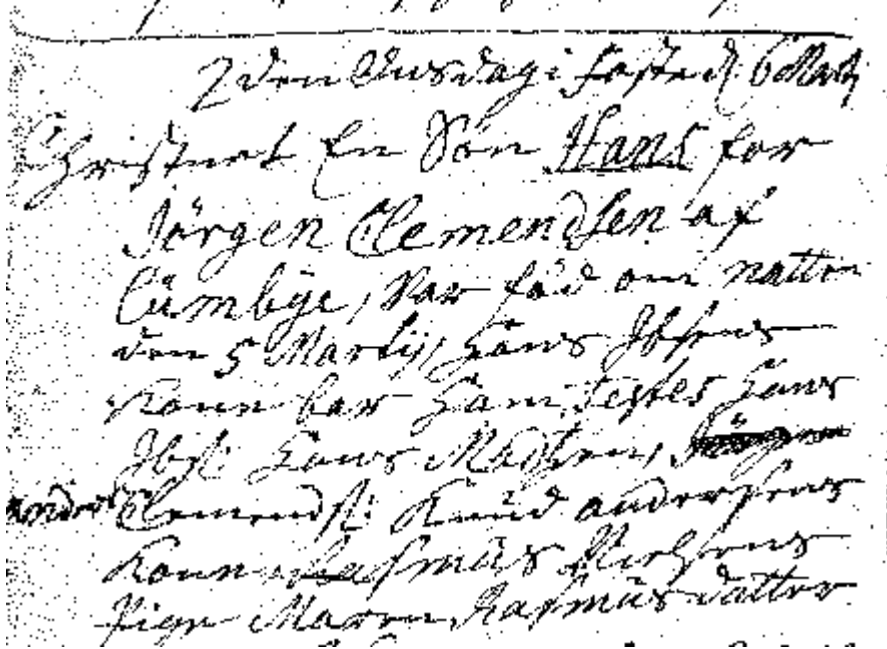 2den Onsdag i Faste d. 6 Martj
Christnet En Søn Hans for
Jörgen Clemendsen af
Cümbÿe, Var fød om natten
den 5 Martij, Hans Ibsens
Konne bar Ham, Testes Hans
Ibs: Hans Madsen, Jörgen
Anders Clemends: Knüd andersens
Konne Rasmüs Nielsens
Pige Maren Rasmüs datter